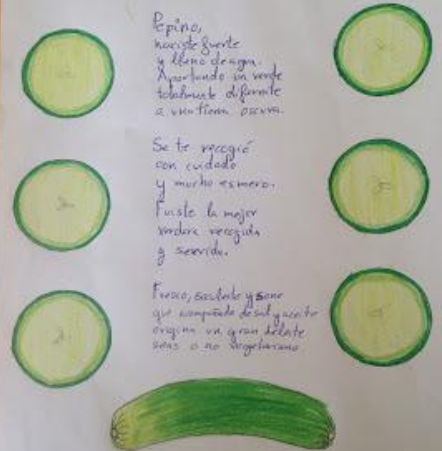 Pepino,
naciste fuerte
y lleno de agua.
Aportando un verde
totalmente diferente
a una tierra oscura.
Se te recogió
con cuidado
y mucho esmero.
Fuiste la mejor
verdura recogida
y servida.
Fresco, suculento y sano
que acompañado de sal y aceite
origina un gran deleite
seas o no vegetariano